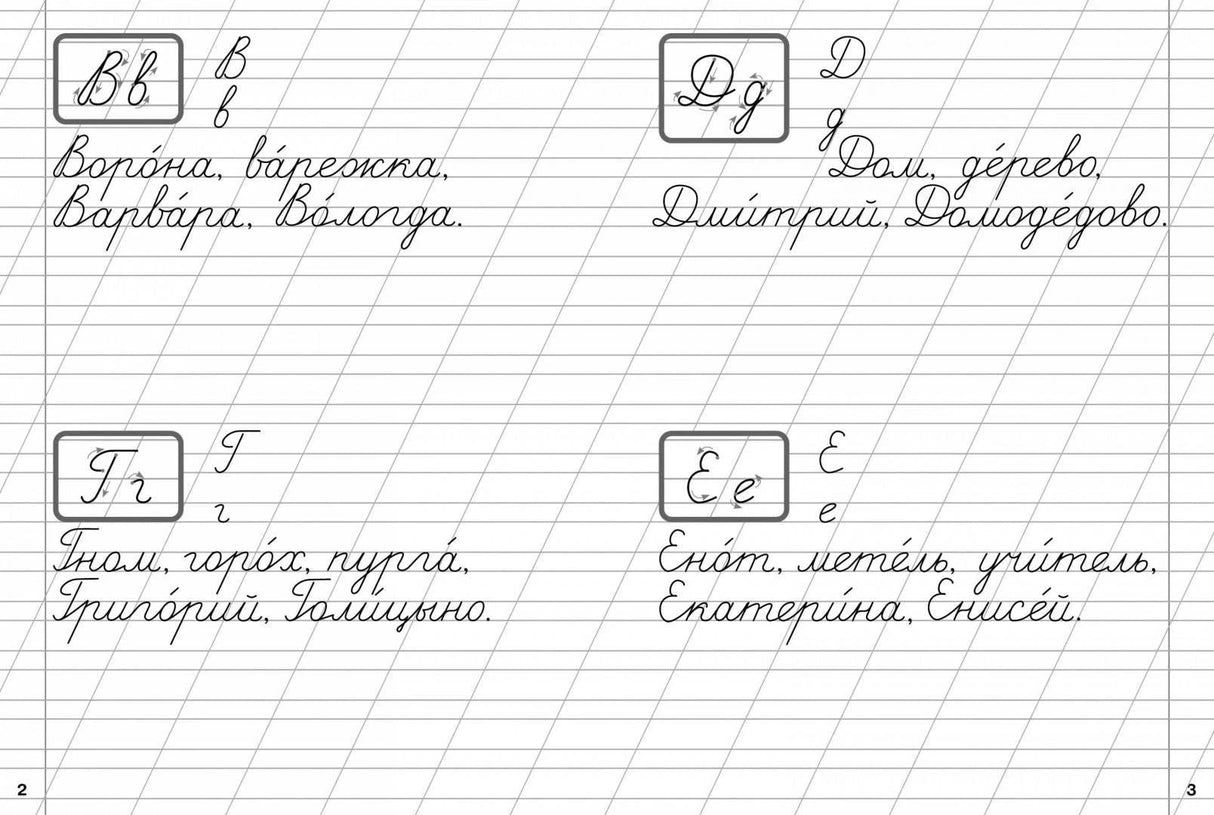 Вв
В
в
Воро́на, ва́режка,
Варва́ра, Во́логда.
Гг
Г
г
Гном, горо́х, пурга́,
Григо́рий, Голи́цыно.
2
Дд
Д
д
Дом, де́рево,
Дми́трий, Домоде́дово.
Ее
Е
е
Ено́т, мете́ль, учи́тель,
Екатери́на, Енисе́й.
3